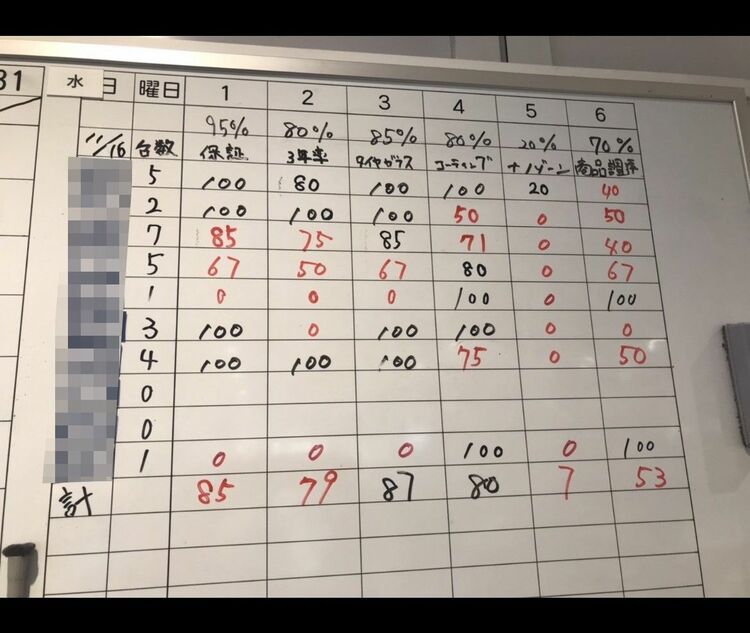 31 水 日 曜日 1 2 3 4 5 6
95% 80% 85% 80% 20% 70%
11/16 台数 保証 3年率 タイヤガラス コーティング ナノゾーン 商品調序
5 100 80 100 100 20 40
2 100 100 100 50 0 50
7 85 75 85 71 0 40
5 67 50 67 80 0 67
1 0 0 0 100 0 100
3 100 0 100 100 0 0
4 100 100 100 75 0 50
0
0
1 0 0 0 100 0 100
計 85 79 87 80 7 53